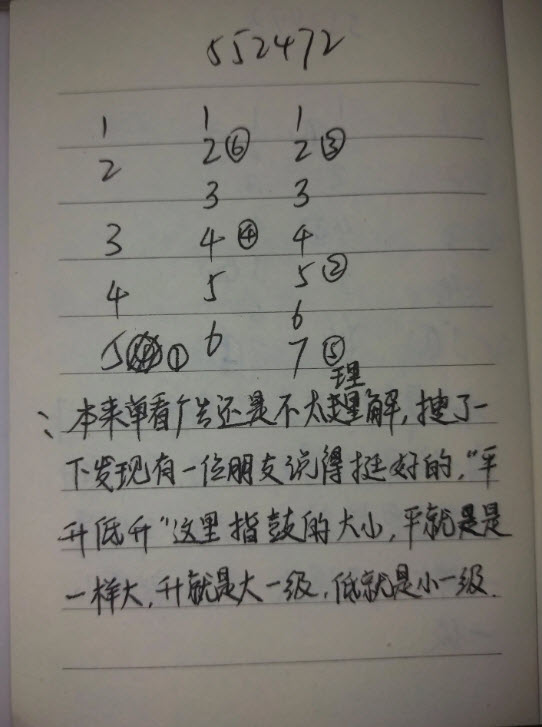 552472
1 1 1
2 2⑥ 2③
3 3
3 4④ 4
4 5 5②
6
5 ① 6 7⑤
理
本来单看广告还是不太解,搜了一
下发现有一位朋友说得挺好的,“平
升低升”这里指鼓的大小,平就是是
一样大,升就是大一级,低就是小一级.